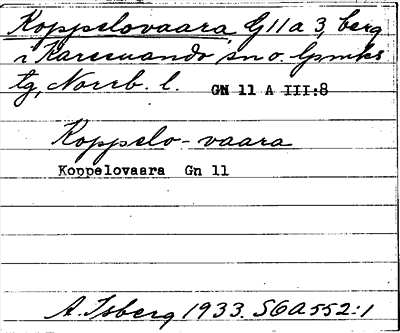 Koppelovaara G11a3, berg
i Karesuando sn o. lpmks
tg, Norrb. l. GN 11 A III:8
Koppelo-vaara
Koppelovaara Gn 11
A. Isberg 1933. SOA 552:1